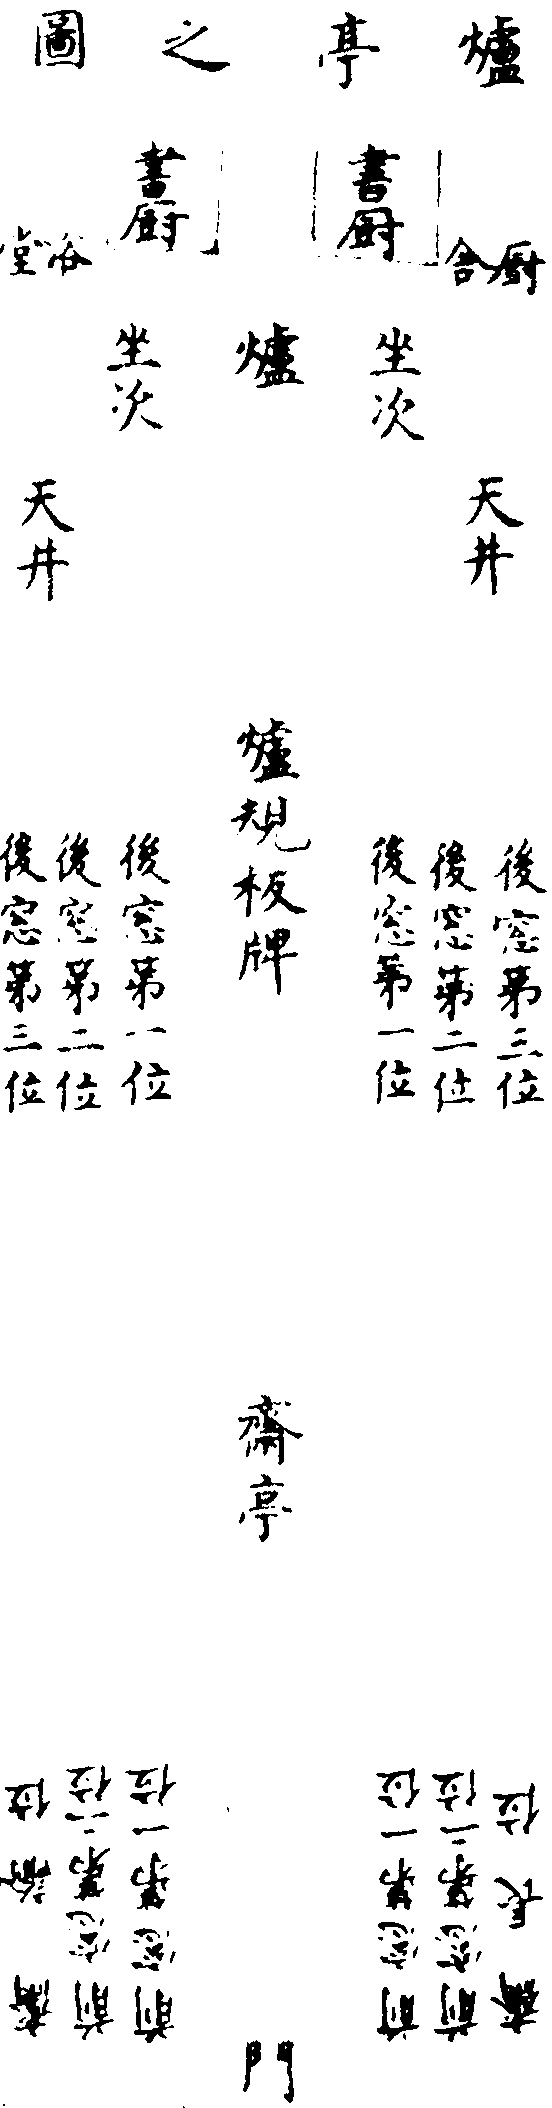 爐亭之圖
廚舍
書廚
書廚
浴堂
坐次
爐
坐次
天井
天井
爐規板牌
後窓第三位
後窓第二位
後窓第一位
後窓第一位
後窓第二位
後窓第三位
齋亭
齋長位
前窓第二位
前窓第一位
前窓第一位
前窓第二位
齋諭位
門